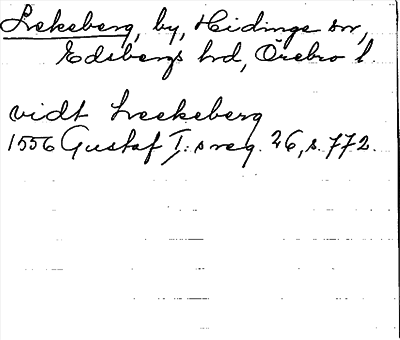 Lekeberg, by, Hidinge sn,
Edsbergs hd, Örebro l.
vidt Leekeberg
1556 Gustaf I:s reg. 26, s. 772.